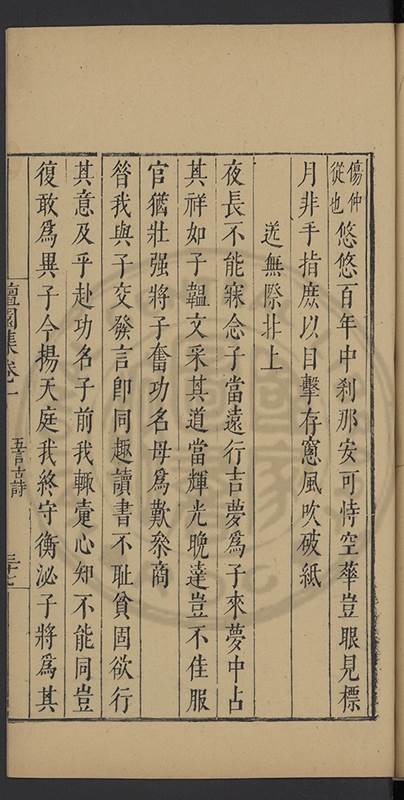 傷仲從也悠悠百年中刹那安可恃空華豈眼見標
月非手指庶以目擊存窻風吹破紙
送無際北上
夜長不能寐念子當遠行吉夢爲子來夢中占
其祥如子韞文采其道當輝光晚達豈不佳服
官猶壯强將子奮功名毋爲歎叅商
昝我與子交發言卽同趣讀書不耻貧固欲行
其意及乎赴功名子前我輙㚄心知不能同豈
復敢爲異子今揚天庭我終守衡泌子將爲其
檀園集卷一 五言古詩 三十七